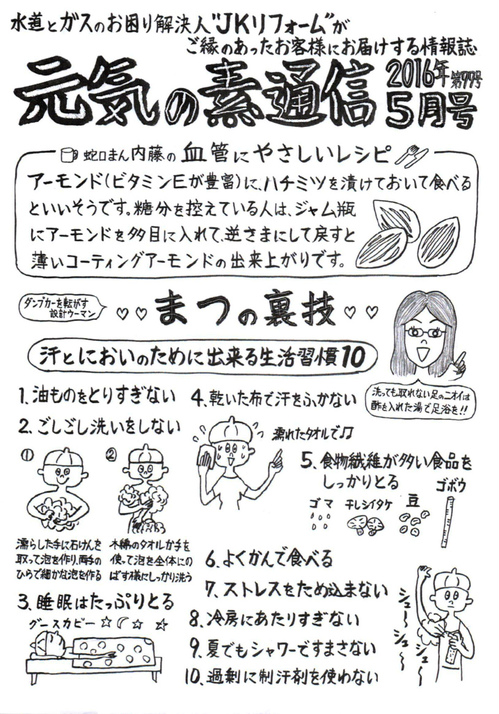 水道とガスのお困り解決人"JKリフォーム"が
ご縁のあったお客様にお届けする情報誌
元気の素通信
2016年 第77号
5月号
蛇口まん内藤の 血管にやさしいレシピ
アーモンド(ビタミンEが豊富)に、ハチミツを漬けておいて食べる
といいそうです。糖分を控えている人は、ジャム瓶
にアーモンドを多目に入れて、逆さまにして戻すと
薄いコーティングアーモンドの出来上がりです。
ダンプカーを転がす
設計ウーマン
♡♡まつの裏技♡♡
汗とにおいのために出来る生活習慣10
洗っても取れない足のニオイは
酢を入れた湯で足浴を!!
1.油ものをとりすぎない
2.ごしごし洗いをしない
① ②
濡らした手に石けんを
取って泡を作り、両手の
ひらで細かな泡を作る
木綿のタオルか手を
使って泡を全体にの
ばす様にしっかり洗う
3.睡眠はたっぷりとる
グースカピー☆☾☆ ☆
4.乾いた布で汗をふかない
濡れたタオルで♫
5.食物繊維が多い食品を
しっかりとる
ゴマ 干しシイタケ 豆 ゴボウ
6.よくかんで食べる
7.ストレスをため込まない
8.冷房にあたりすぎない
9.夏でもシャワーですまさない
10.過剰に制汗剤を使わない
シュー
シュー